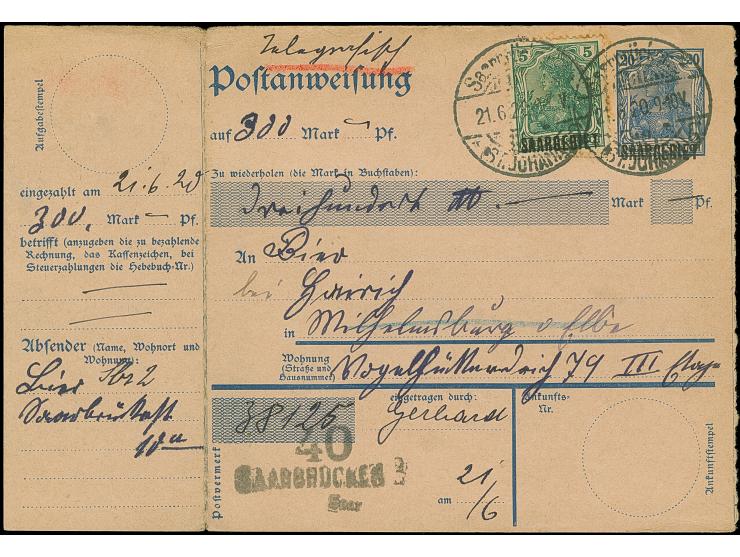 Telegraphisch
Postanweisung
auf 300 Mark — Pf.
5
20 20
SAARGEBIET SAARGEBIET
21.6.20
ST. JOHANN
Aufgabestempel
eingezahlt am 21.6.20
300, Mark — Pf.
betrifft (anzugeben die zu bezahlende
Rechnung, das Kassenzeichen, bei
Steuerzahlungen die Hebebuch-Nr.)
Absender (Name, Wohnort und
Wohnung):
Bier
Saarbrücken
Zu wiederholen (die Mark in Buchstaben):
Dreihundert M. — Mark — Pf.
An Bier
bei Hairich
in Wilhelmsburg a Elbe
Wohnung
(Straße und
Hausnummer)
Vogelhüttendeich 79 III Etage
38125
eingetragen durch:
Gerhard
Ankunfts-
Nr.
40
SAARBRÜCKEN 3
Saar
am 21/6
Postvermerk
Ankunftstempel